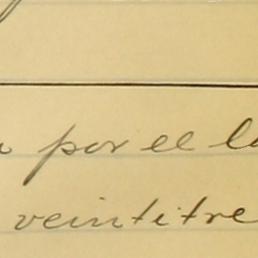 por el
veintitre